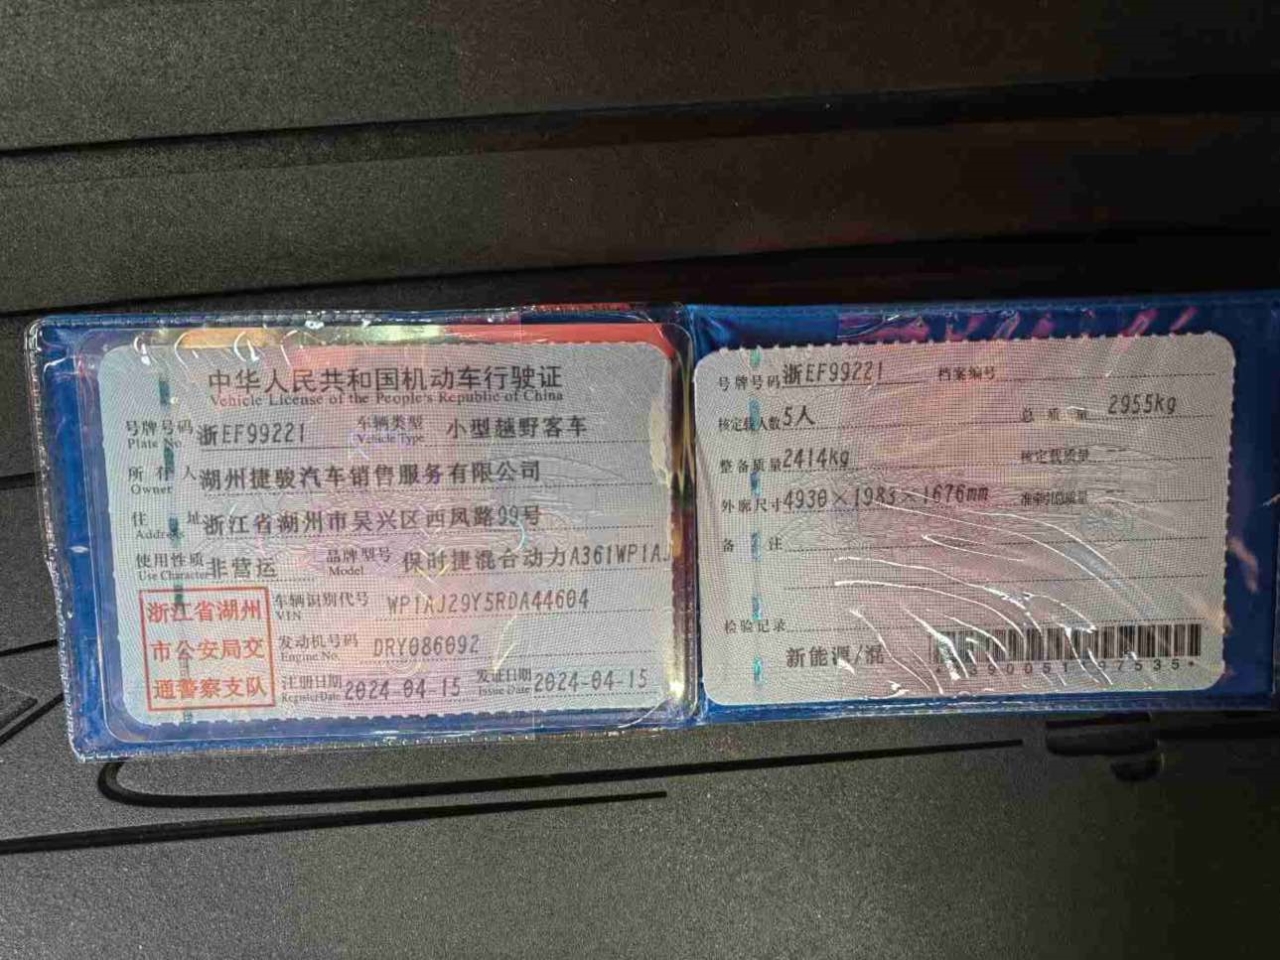 中华人民共和国机动车行驶证
Vehicle License of the People's Republic of China
号牌号码 浙EF99221 车辆类型 小型越野客车
Plate No. Vehicle Type
所有人 湖州捷骏汽车销售服务有限公司
Owner
住址 浙江省湖州市吴兴区西凤路99号
Address
使用性质 非营运 品牌型号 保时捷混合动力A361WP1AJ
Use Character Model
浙江省湖州
市公安局交
通警察支队
车辆识别代号 WP1AJ29Y5RDA44604
VIN
发动机号码 DRY086092
Engine No.
注册日期 2024-04-15 发证日期 2024-04-15
Register Date Issue Date
号牌号码 浙EF99221 档案编号
核定载人数 5人 总质量 2955kg
整备质量 2414kg 核定载质量 --
外廓尺寸 4930×1983×1676mm 准牵引总质量 --
备注
检验记录
新能源/混